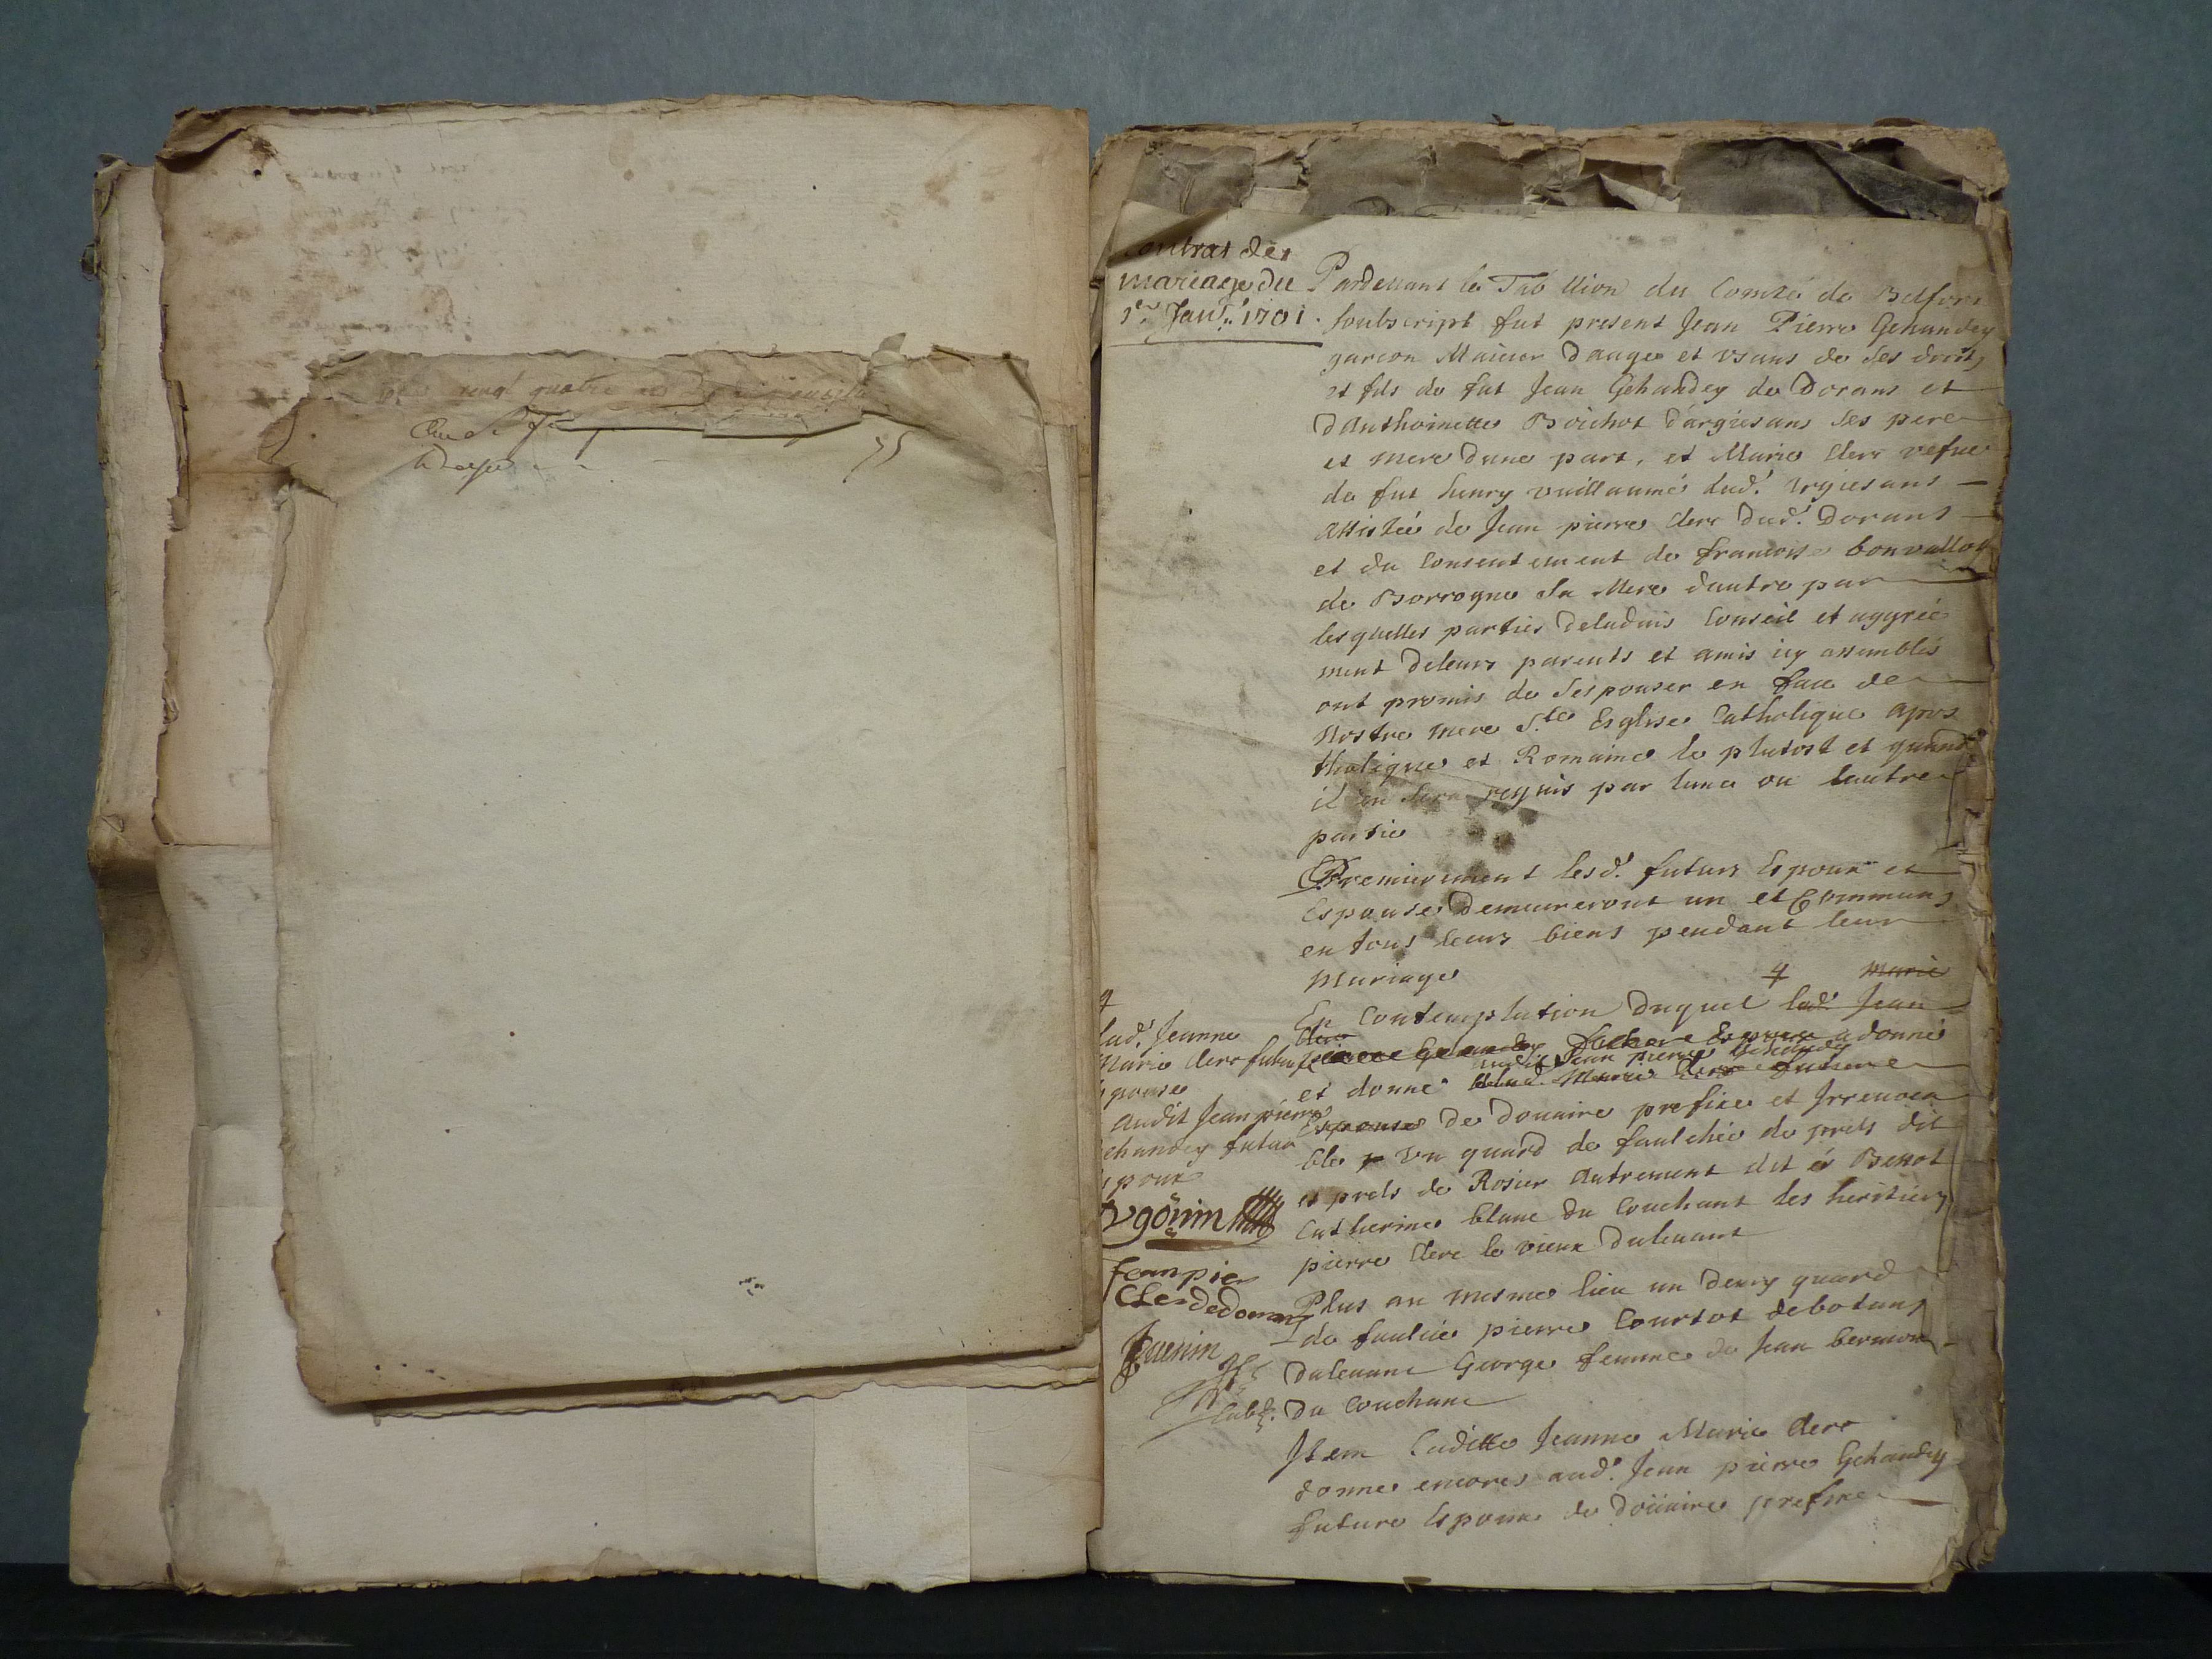 vingt quatre
Contrat de
mariage du
1er Janv. 1701.
Pardevant le Tabellion du Comté de Belfort
soubscript fut present Jean Pierre Gehandey
garcon Maieur d'auge et usans de ses droits
et fils de fut Jean Gehandey de Dorans et
d'Anthoinette Boichot d'argiesans ses pere
et mere d'une part, et Marie Clerc vefue
de fut henry vuillaumé dud. Argiesans
assistée de Jean pierre Clerc dud. Dorans
et du Consentement de francoise bonvallot
de Borrogne sa Mere d'autre par
lesquelles parties de l'aduis Conseil et aggrée
ment de leurs parents et amis icy assemblés
ont promis de s'espouser en face de
Nostre mere Ste Esglise Catholique apos
tholique et Romaine le plutost et quand
il en sera requis par l'une ou l'autre
partie
Premierement lesd. futurs Espoux et
Espouse demeureront un et Communs
en tous leurs biens pendant leur
Mariage
En Contemplation duquel lad. Jean
Marie
Clerc
pierre Gehandey futur Espoux a donné
audit Jean pierre Gehandey
et donne a lad. Marie Clerc future
Espouse de douaire prefixe et Irreuoca
ble un quard de faulchée de prels dit
es prels de Rosier autrement dit és Bessot
Catherine blanc du Couchant les heritiers
pierre Clerc le vieux du leuant
Plus au mesme lieu un demy quard
de faulcée pierre Courtot de botans
du leuant George femme de Jean bermon
du Couchant
Item laditte Jeanne Marie Clerc
donne encores aud. Jean pierre Gehandey
future Espoux de doüaire prefixe
lad. Jeanne
Marie Clerc future
Espouse
audit Jean pierre
Gehandey futur
Espoux
Vgonin
Jean pier
Cler de doran
Juenin
Tab.